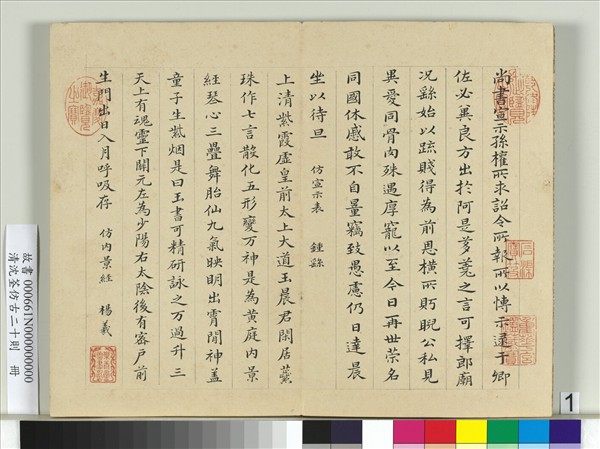 尚書宣示孫權所求詔令所報所以博示逮于卿
佐必冀良方出於阿是芻蕘之言可擇郎廟
況繇始以疏賤得為前恩橫所眄睨公私見
異愛同骨肉殊遇厚寵以至今日再世榮名
同國休慼敢不自量竊致愚慮仍日達晨
坐以待旦 仿宣示表 鍾繇
上清紫霞虛皇前太上大道玉晨君閒居蘂
珠作七言散化五形變万神是為黃庭內景
經琴心三疊舞胎仙九氣映明出霄間神蓋
童子生紫烟是曰玉書可精研詠之万過升三
天上有魂靈下關元左為少陽右太陰後有密戶前
生門出日入月呼吸存 仿內景經 楊羲
故書 000661N000000000
清沈荃仿古二十則 冊
1